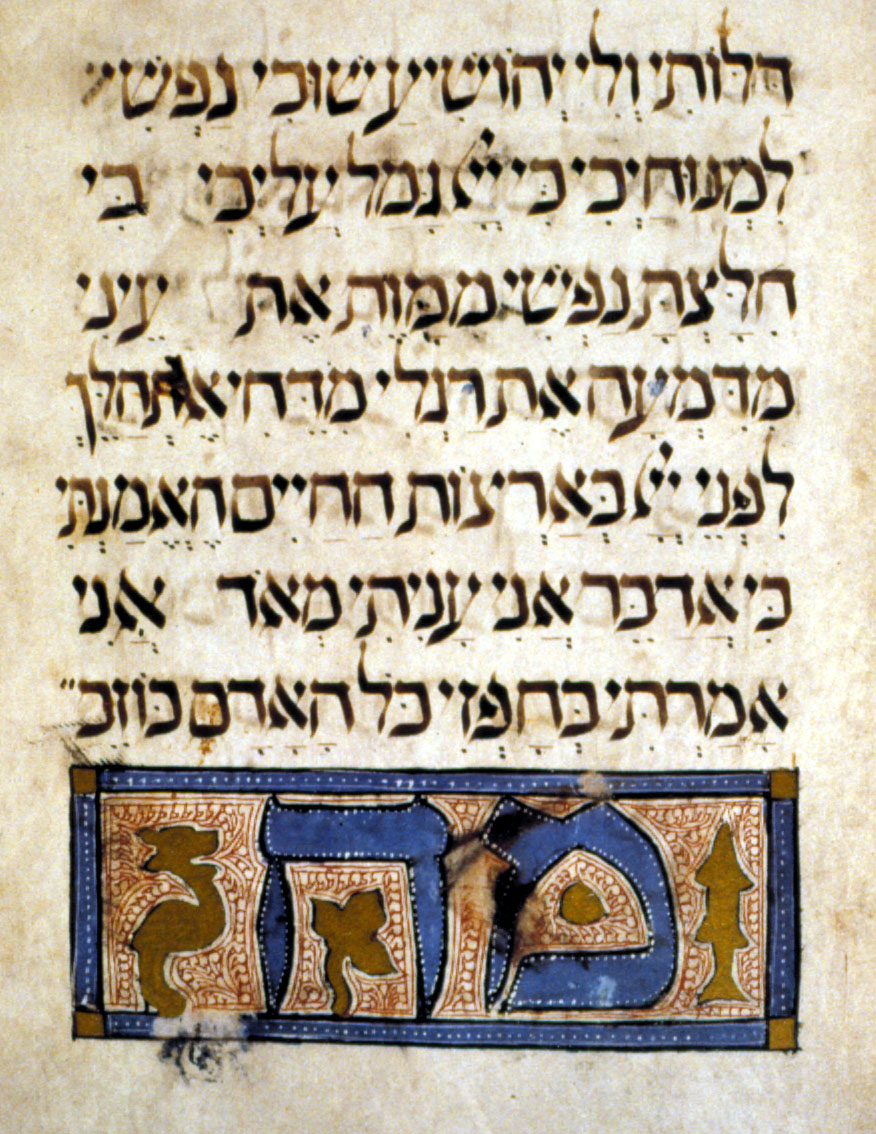 דַּלּוֹתִי וְלִי יְהוֹשִׁיעַ שׁוּבִי נַפְשִׁי
לִמְנוּחָיְכִי כִּי יְיָ גָּמַל עָלָיְכִי כִּי
חִלַּצְתָּ נַפְשִׁי מִמָּוֶת אֶת עֵינִי
מִדִּמְעָה אֶת רַגְלִי מִדֶּחִי אֶתְהַלֵּךְ
לִפְנֵי יְיָ בְּאַרְצוֹת הַחַיִּים הֶאֱמַנְתִּי
כִּי אֲדַבֵּר אֲנִי עָנִיתִי מְאֹד אֲנִי
אָמַרְתִּי בְּחָפְזִי כָּל הָאָדָם כּוֹזֵב
מה